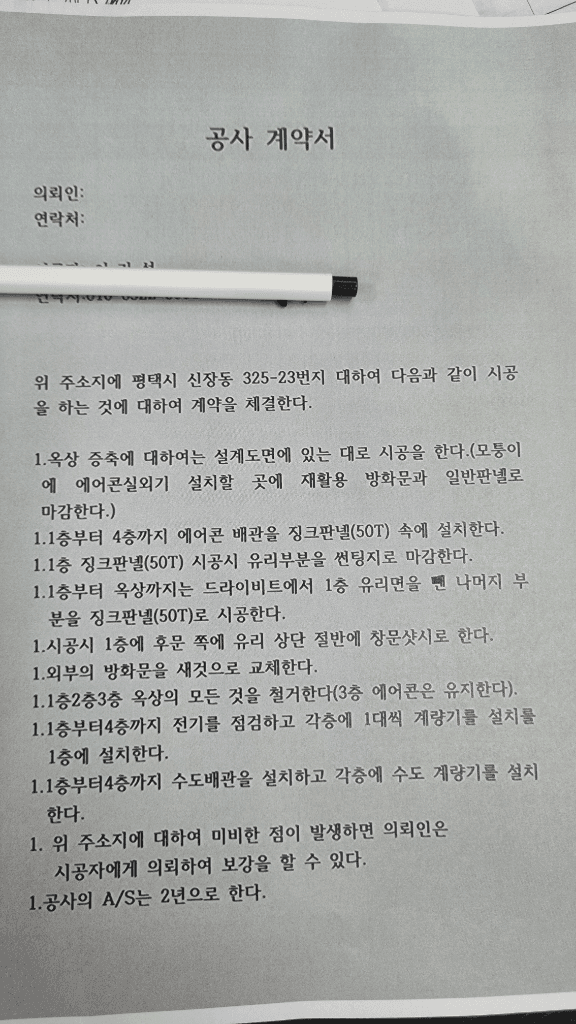 공사 계약서
의뢰인:
연락처:
위 주소지에 평택시 신장동 325-23번지 대하여 다음과 같이 시공
을 하는 것에 대하여 계약을 체결한다.
1.옥상 증축에 대하여는 설계도면에 있는 대로 시공을 한다.(모퉁이
에 에어콘실외기 설치할 곳에 재활용 방화문과 일반판넬로
마감한다.)
1.1층부터 4층까지 에어콘 배관을 징크판넬(50T) 속에 설치한다.
1.1층 징크판넬(50T) 시공시 유리부분을 썬팅지로 마감한다.
1.1층부터 옥상까지는 드라이비트에서 1층 유리면을 뺀 나머지 부
분을 징크판넬(50T)로 시공한다.
1.시공시 1층에 후문 쪽에 유리 상단 절반에 창문샷시로 한다.
1.외부의 방화문을 새것으로 교체한다.
1.1층2층3층 옥상의 모든 것을 철거한다(3층 에어콘은 유지한다).
1.1층부터4층까지 전기를 점검하고 각층에 1대씩 계량기를 설치를
1층에 설치한다.
1.1층부터4층까지 수도배관을 설치하고 각층에 수도 계량기를 설치
한다.
1. 위 주소지에 대하여 미비한 점이 발생하면 의뢰인은
시공자에게 의뢰하여 보강을 할 수 있다.
1.공사의 A/S는 2년으로 한다.